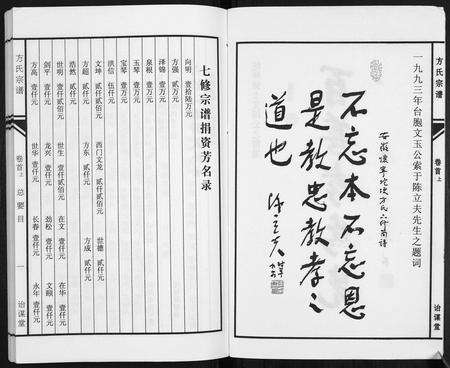 方氏宗谱
卷首上
治谋堂
一九九三年台胞文玉公索于陈立夫先生之题词
不忘本不忘恩
是教忠教孝之
道也
陈立夫
七修宗谱捐资芳名录
向明 壹拾陆万元
方强 贰万元
泽锦 壹万元
泉根 壹万元
玉琴 壹万元
宝琴 壹万元
洪信 伍仟元
文坤 贰仟贰佰元 西门文龙 贰仟元 世德 贰仟元
方超 贰仟元 方东 贰仟元 方成 贰仟元
浩然 贰仟元
世明 壹仟贰佰元 世生 壹仟贰佰元 在文 壹仟元 在华 壹仟元
剑平 壹仟元 龙兴 壹仟元 劲松 壹仟元 文颐 壹仟元
方高 壹仟元 世华 壹仟元 长春 壹仟元 永年 壹仟元
方氏宗谱
卷首上
总要目
一
治谋堂